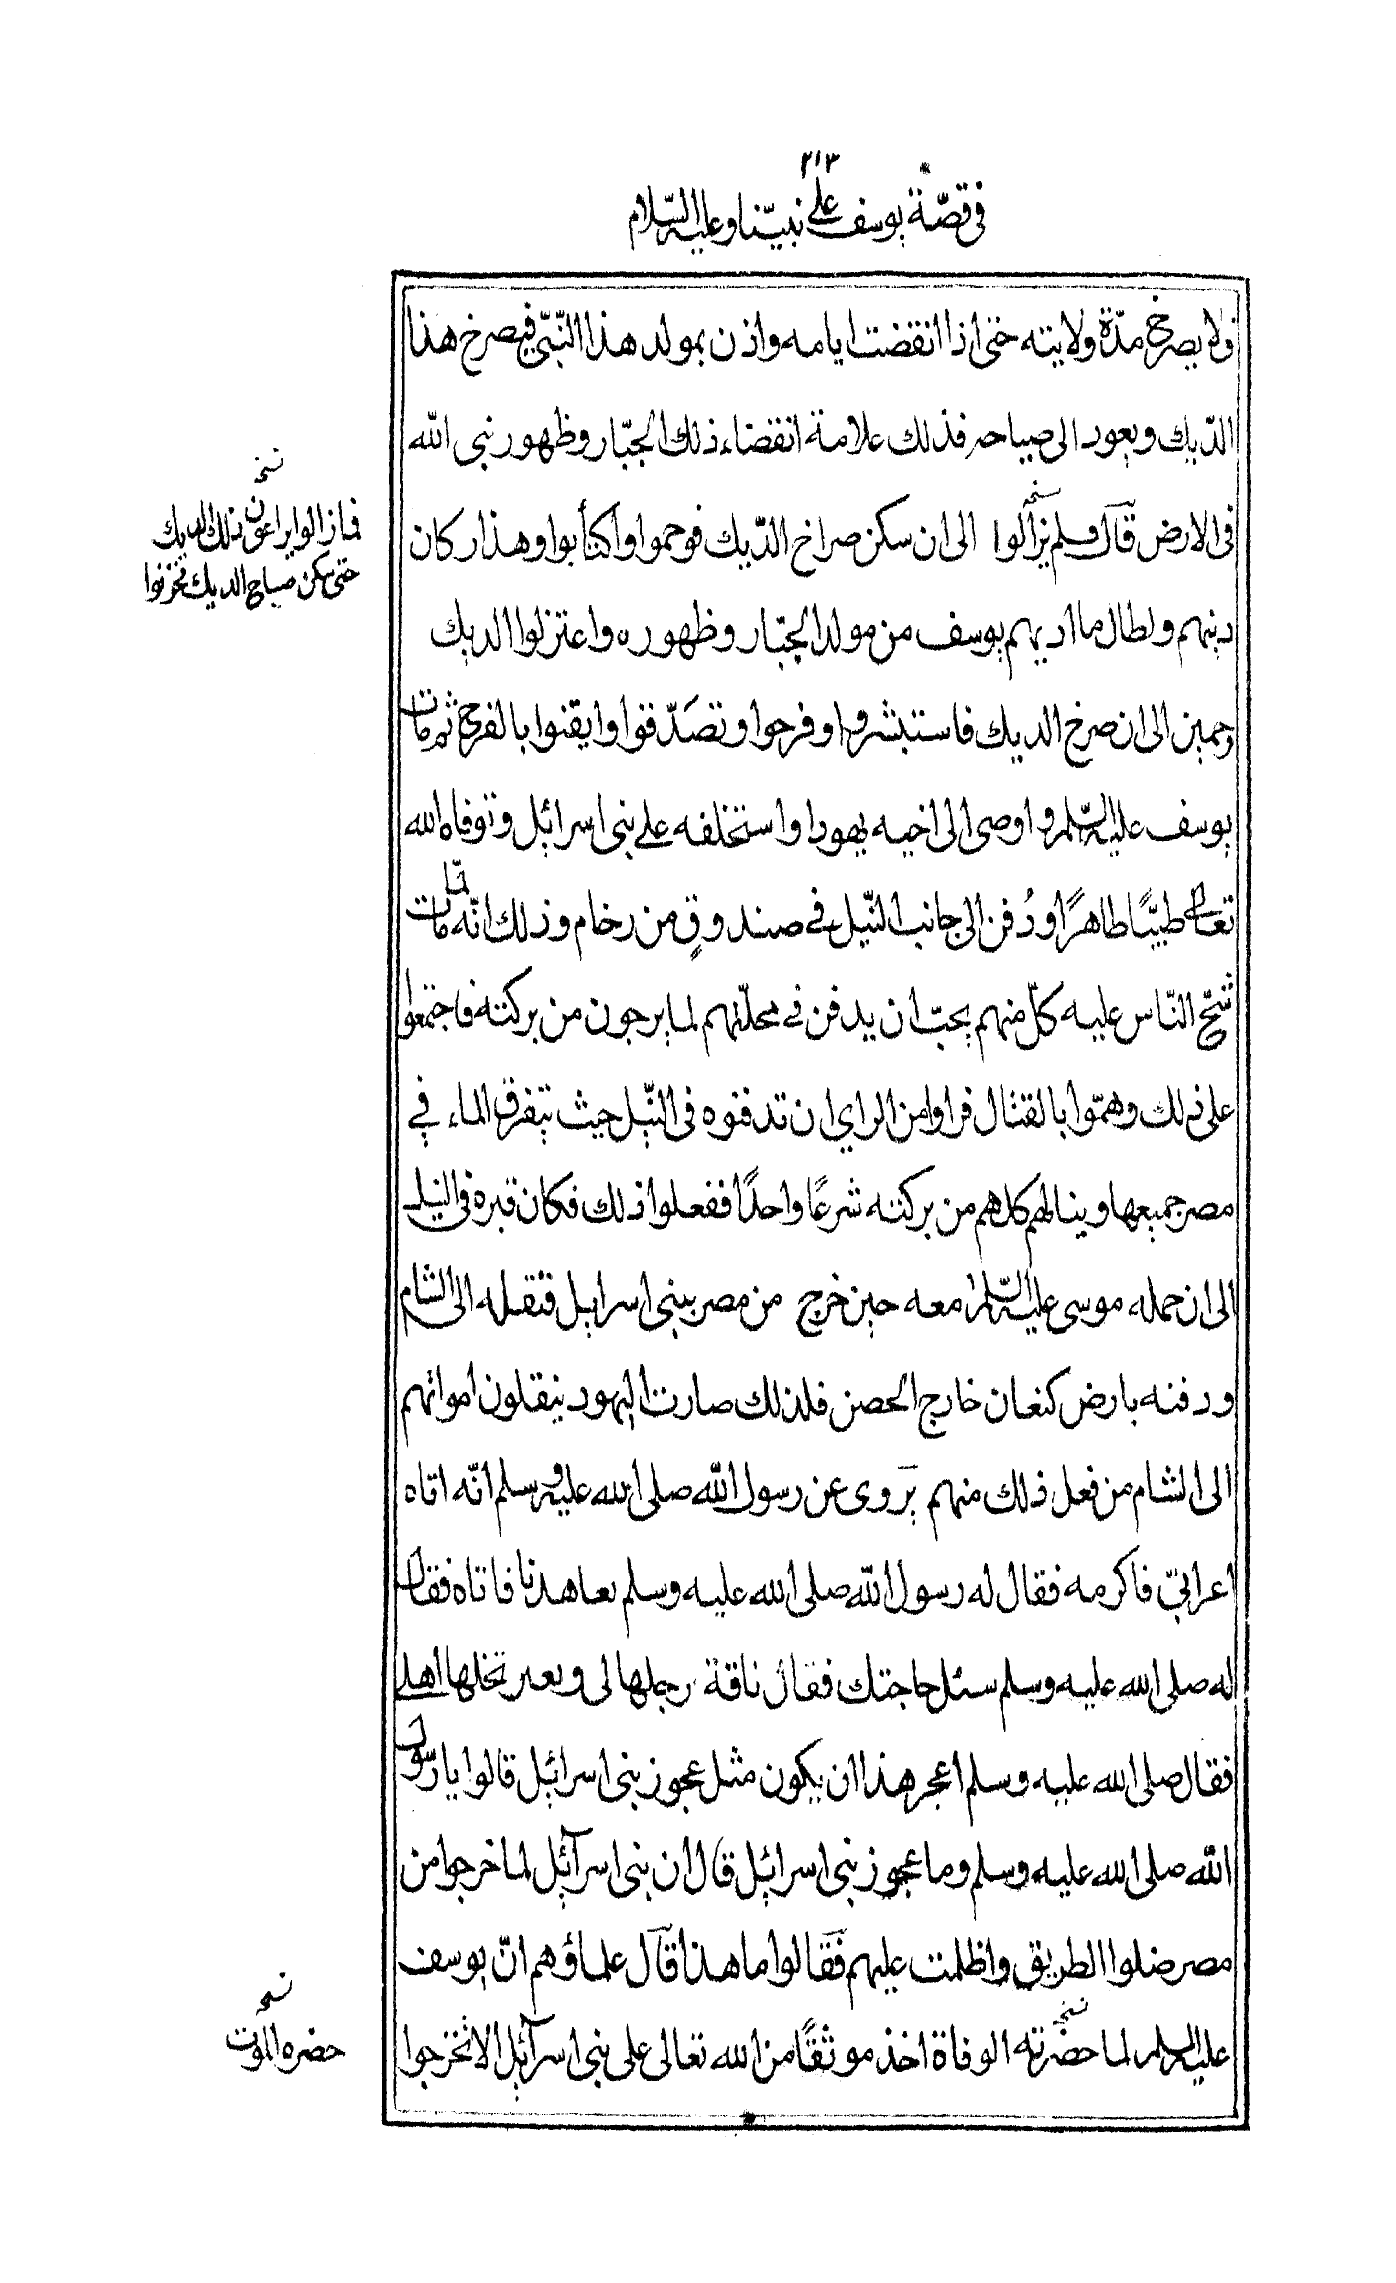 ٢١٣
في قصّة يوسف على نبيّنا وعليه السّلام
ولا يصرخ مدّة ولايته حتى اذا انقضت ايامه واذن بمولد هذا النّبيّ فيصرخ هذا
الدّيك ويعود الى صياحه فذلك علامة انقضاء ذلك الجبّار وظهور نبى الله
في الارض قال فلم يزالوا الى ان سكن صراخ الدّيك فوجموا واكتأبوا وهذا ركان
نسخه
نسخه
فما زالوا يراعون ذلك الديك
حتى سكن صياح الديك فحزنوا
دينهم ولطال ما اديهم يوسف من مولد الجبّار وظهوره واعتزلوا الديك
وجمين الى ان صرخ الديك فاستبشروا وفرحوا وتصَدّقوا وايقنوا بالفرج ثم مات
يوسف عليه السّلم واوصى الى اخيه يهودا واستخلفه على بنى اسرائيل وتوفاه الله
تعالى طيبًا طاهرًا ودُفن الى جانب النّيل في صندوقٍ من رخام وذلك انّه لمّا مات
تشحّ النّاس عليه كلّ منهم يحبّ ان يدفن في محلّتهم لما يرجون من بركته فاجتمعوا
على ذلك وهمّوا بالقتال فراوا من الراي ان تدفنوه في النّيل حيث يتفرق الماء في
مصر جميعها وينالهم كلهم من بركته شرعًا واحدًا ففعلوا ذلك فكان قبره في النيل
الى ان حمله موسى عليه السّلم معه حين خرج من مصر ببنى اسرايل فنقله الى الشام
ودفنه بارض كنعان خارج الحصن فلذلك صارت اليهود ينقلون امواتهم
الى الشام من فعل ذلك منهم يروى عن رسول الله صلى الله عليه وسلم انّه اتاه
اعرابيّ فاكرمه فقال له رسول الله صلى الله عليه وسلم تعاهدنا فاتاه فقال
له صلى الله عليه وسلم سئل حاجتك فقال ناقة رجلها لى وبعير تخلها اهلى
فقال صلى الله عليه وسلم اعجز هذا ان يكون مثل عجوز بنى اسرائيل قالوا يا رسول
الله صلى الله عليه وسلم وما عجوز بنى اسرائيل قال ان بنى اسرآئيل لما خرجوا من
مصر ضلوا الطريق واظلمت عليهم فقالوا ما هذا قال علماؤهم انّ يوسف
عليه السلم لما حضرته الوفاة اخذ موثقًا من الله تعالى على بنى اسرآئيل الا تخرجوا
نسخه
نسخه
حضره الموت